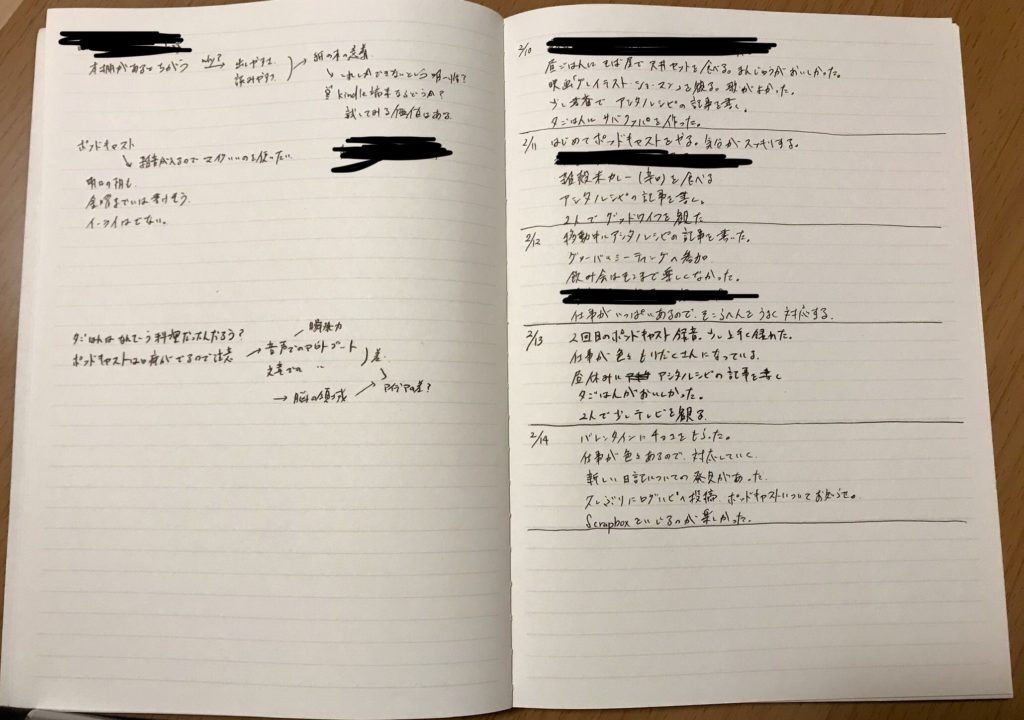 本棚があるとちがう why? → 出しやすさ 読みやすさ → 紙の本の意義
↳ これしかできないという唯一性?
Kindle端末ならどうか?
試してみる価値はある
ポッドキャスト
↳ 雑音が入るのでマイクいいのを使いたい
明日の朝も
金曜までには
イーライはせない。
夕ごはんはなんていう料理だったんだろう?
ポッドキャストは中身がでるので注意 → 音声でのアウトプット
瞬発力
文章での 〃
差
→ 脳の領域 → アイデアの差?
2/10 昼ごはんにそば屋で天丼セットを食べる。まんじゅうがおいしかった。
映画「グレイテスト・ショーマン」を観る。歌がよかった。
少し書斎でアンタルレシピの記事を書く。
夕ごはんにサバクッパを作った。
2/11 はじめてポッドキャストをやる。気分がスッキリする。
雑穀米カレー(辛口)を食べる
アンタルレシピの記事を書く。
2人でグッドワイフを観た
2/12 移動中にアンタルレシピの記事を書いた。
グローバルミーティングへ参加
飲み会はそこまで楽しくなかった。
仕事がいっぱいあるので、そこらへんをうまく対応する。
2/13 2回目のポッドキャスト録音。少し上手く録れた。
仕事が色ともりだくさんになっている。
昼休みに アンタルレシピの記事を書く
夕ごはんがおいしかった。
2人で少しテレビを観る
2/14 バレンタインにチョコをもらった。
仕事が色々あるので、対応していく
新しい日記についての発見があった
久しぶりにログハピへ投稿。ポッドキャストについてお知らせ。
Scrapboxでいじるのが楽しかった。